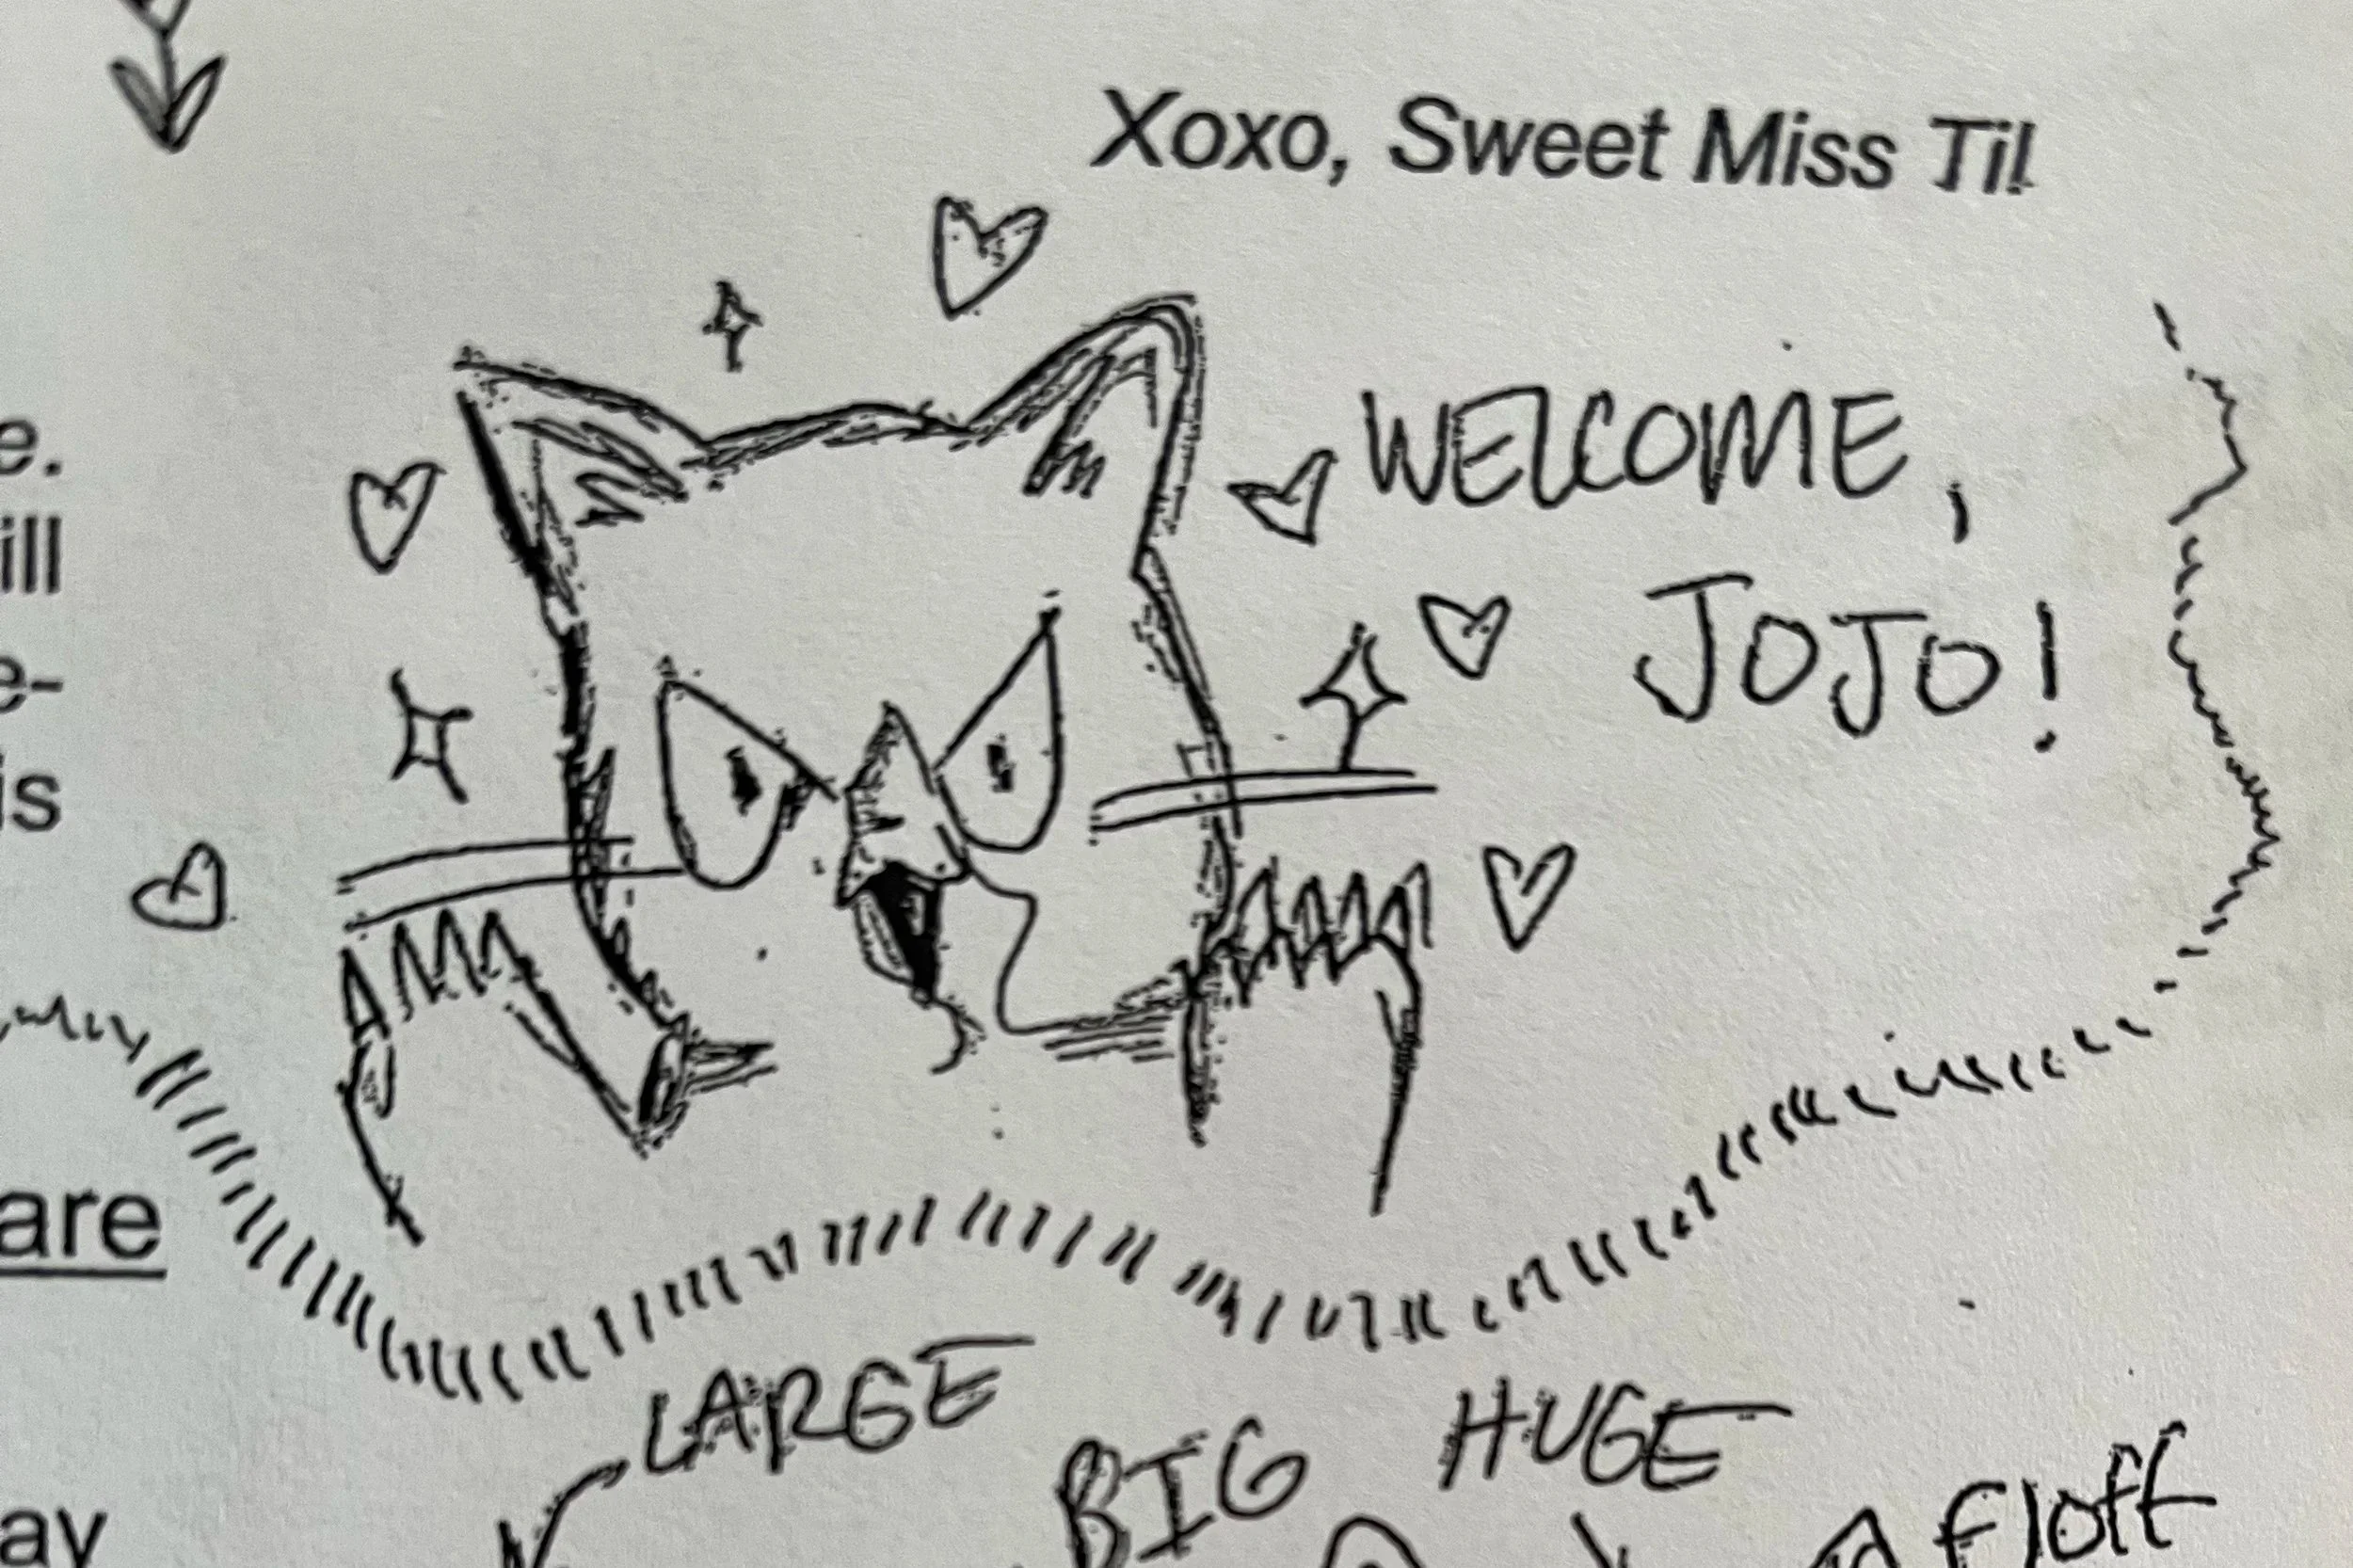 Xoxo, Sweet Miss Til
e.
WELCOME,
ill
JOJO!
e-
is
are
LARGE
HUGE
BIG
floft
ay